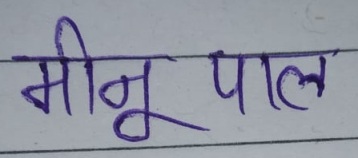 मीनू पाल